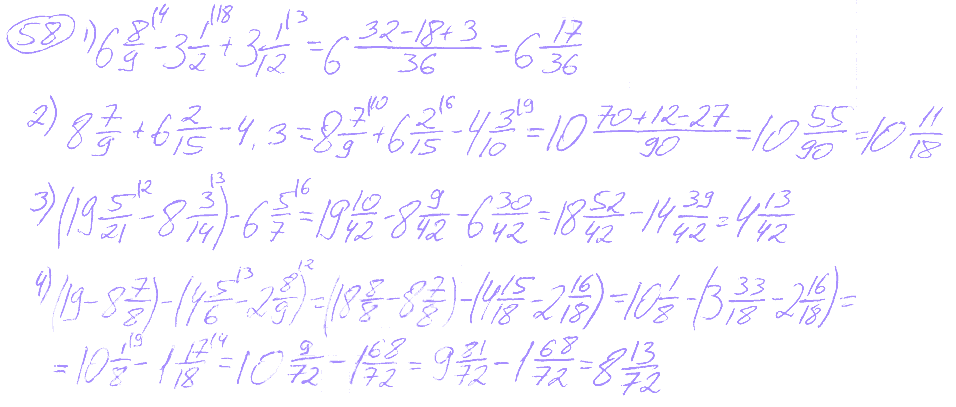 58 1) 6 8/9|4 - 3 1/2|18 + 3 1/12|3 = 6 (32-18+3)/36 = 6 17/36
2) 8 7/9 + 6 2/15 - 4,3 = 8 7/9|10 + 6 2/15|6 - 4 3/10|9 = 10 (70+12-27)/90 = 10 55/90 = 10 11/18
3) (19 5/21|2 - 8 3/14|3) - 6 5/7|6 = 19 10/42 - 8 9/42 - 6 30/42 = 18 52/42 - 14 39/42 = 4 13/42
4) (19 - 8 7/8) - (4 5/6|3 - 2 8/9|2) = (18 8/8 - 8 7/8) - (4 15/18 - 2 16/18) = 10 1/8 - (3 33/18 - 2 16/18) =
= 10 1/8|9 - 1 17/18|4 = 10 9/72 - 1 68/72 = 9 81/72 - 1 68/72 = 8 13/72